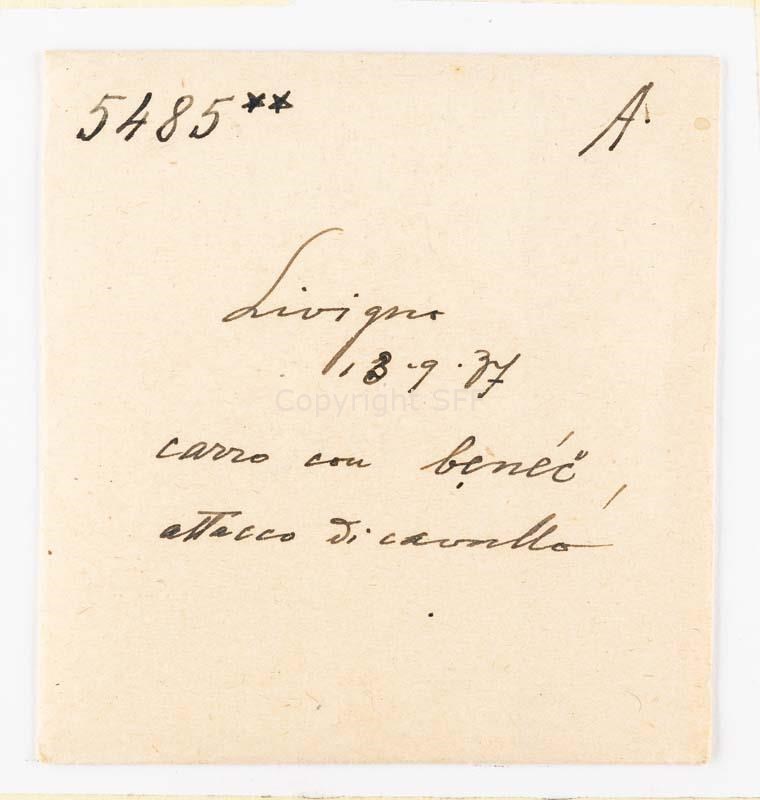 5485** A.
Livigno
13.9.37
Copyright SFI
carro con benéč,
attacco di cavallo